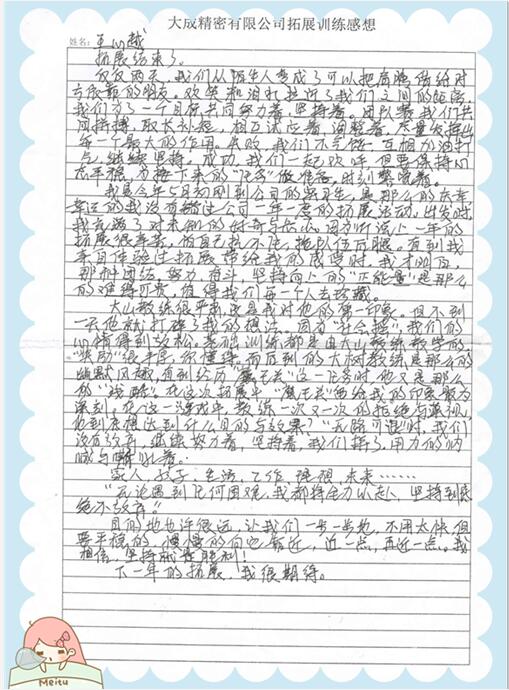 大成精密有限公司拓展训练感想
姓名：
拓展结束了。
仅仅两天，我们从陌生人变成了可以把肩膀借给对
方依靠的朋友。欢笑和泪水拉近了我们之间的距离，
我们为了一个目标共同努力着，坚持着。团队赛我们共
同拼搏，取长补短，相互试应着，调整着，尽量发挥出
每一个最大的作用。失败，我们不气馁，互相加油打
气，继续坚持，成功，我们一起欢呼，但要保持心
态平稳，为接下来的“任务”做准备，时刻警惕着。
我是今年5月初刚到公司的实习生，是那么的庆幸
幸运的我没有错过公司一年一度的拓展活动，出发时
我充满了对未知的好奇与担心，因为听说上一年的
拓展很辛苦，怕自己执不住，拖队伍后腿。直到我
亲自体验过拓展带给我的感觉时，我才明白，
那种团结、努力、奋斗、坚持向上的“正能量”是那么
的难得可贵，值得我们每一个人去珍藏。
大山教练很严肃，这是我对他的第一印象。但不到
一天他就打碎了我的想法。因为“社会摇”，我们的
心情得到放松，基础训练都是由大山教练教学的
“奖励”很丰厚，你懂得。而后到的大树教练是那么的
幽默风趣，直到经历“ 无天”这一任务时，他又是那么
的“残酷”。在这次拓展中“ 无天”也给我的印象最为
深刻，在这一游戏中，教练一次又一次的拒绝与藐视，
他到底想达到什么目的与效果？“无路可退”时，我们
没有放弃，继续努力着，坚持着，我们拼了，用力的呐
喊与嘶吼着。
家人，孩子，生活，工作，理想，未来……
“无论遇到任何困难，我都将全力以赴，坚持到底
绝不放弃。”
目的地也许很远，让我们一步一步地，不用太快，但
要平稳的，慢慢的向它靠近，近一点，再近一点。我
相信，坚持就是胜利！
下一年的拓展，我很期待。
Meitu